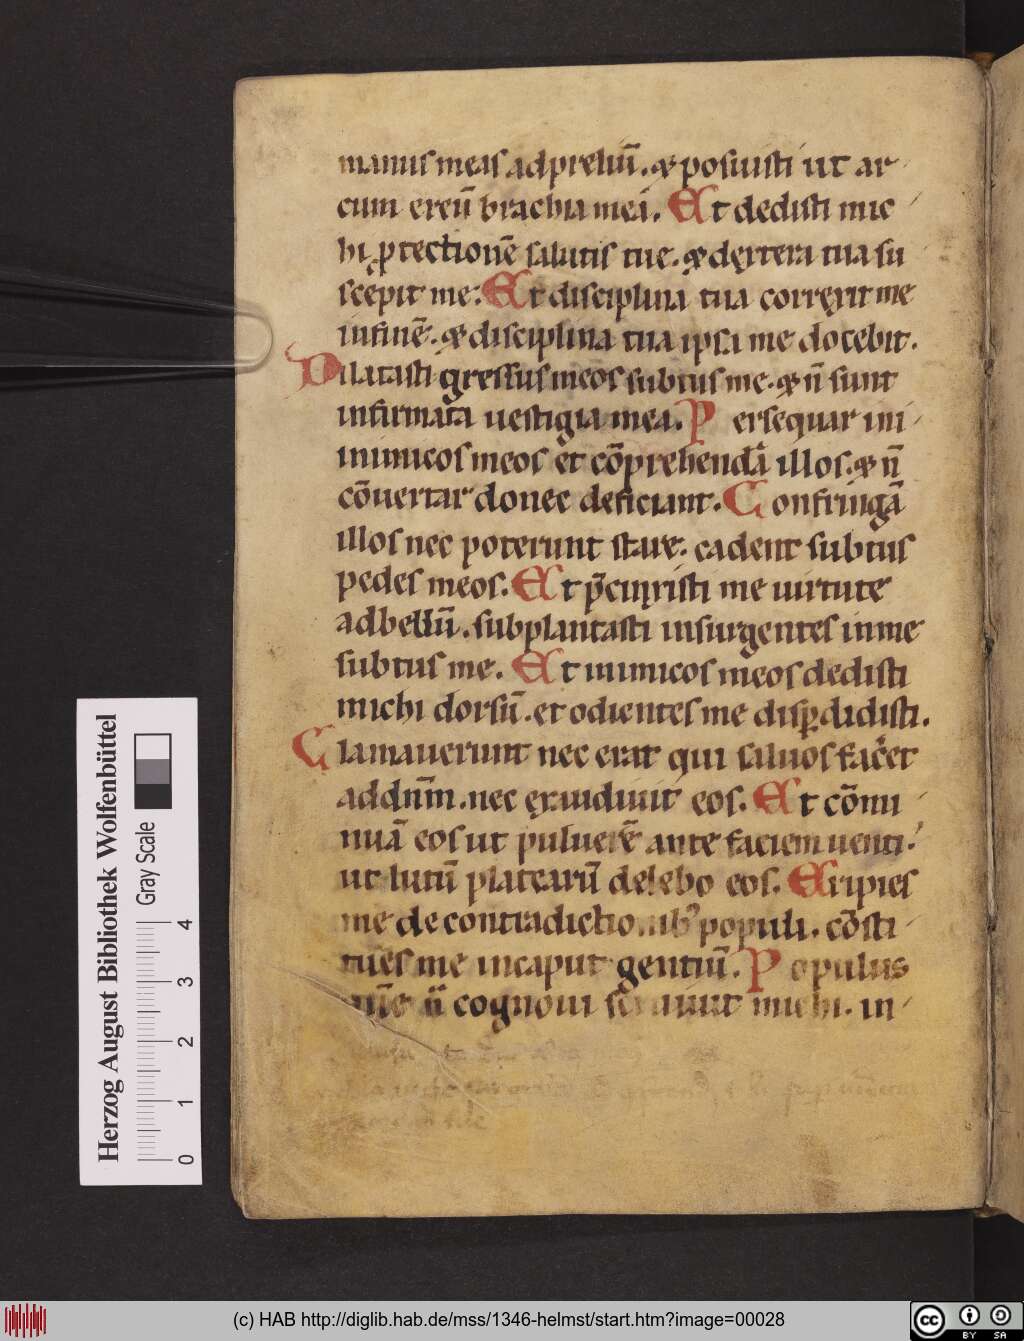 manus meas ad preliū. & posuisti ut ar
cum ereū brachia mea. Et dedisti mic
hi ꝓtectionē salutis tue. & dextera tua su
scepit me: Et disciplina tua correxit me
in finē. & disciplina tua ipsa me docebit.
Dilatasti gressus meos subtus me. & n̄ sunt
infirmata uestigia mea. Persequar ini
inimicos meos et cōprehendā illos. & n̄
cōuertar donec deficiant. Confringā
illos nec poterunt stare. cadent subtus
pedes meos. Et p̄cinxisti me uirtute
ad bellū. subplantasti insurgentes in me
subtus me. Et inimicos meos dedisti
michi dorsū. et odientes me disꝑdidisti.
Clamauerunt nec erat qui saluos facet
ad dn̄m. nec exaudiuit eos. Et cōmi
nuā eos ut puluerē ante faciem uenti.
ut lutū platearū delebo eos. Eripies
me de contradictionibꝰ populi. cōsti
tues me in caput gentiū. Populus
quē n̄ cognoui seruiuit michi. in
Herzog August Bibliothek Wolfenbüttel
Gray Scale
0 1 2 3 4
(c) HAB http://diglib.hab.de/mss/1346-helmst/start.htm?image=00028
cc BY SA